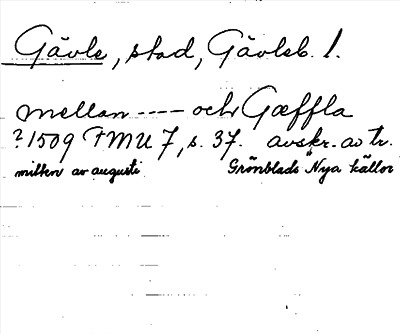 Gävle, stad, Gävleb. l.
mellan ---- och Gæffla
? 1509 FMU 7, s. 37. avskr. av tr.
mitten av augusti Grönblads Nya källor